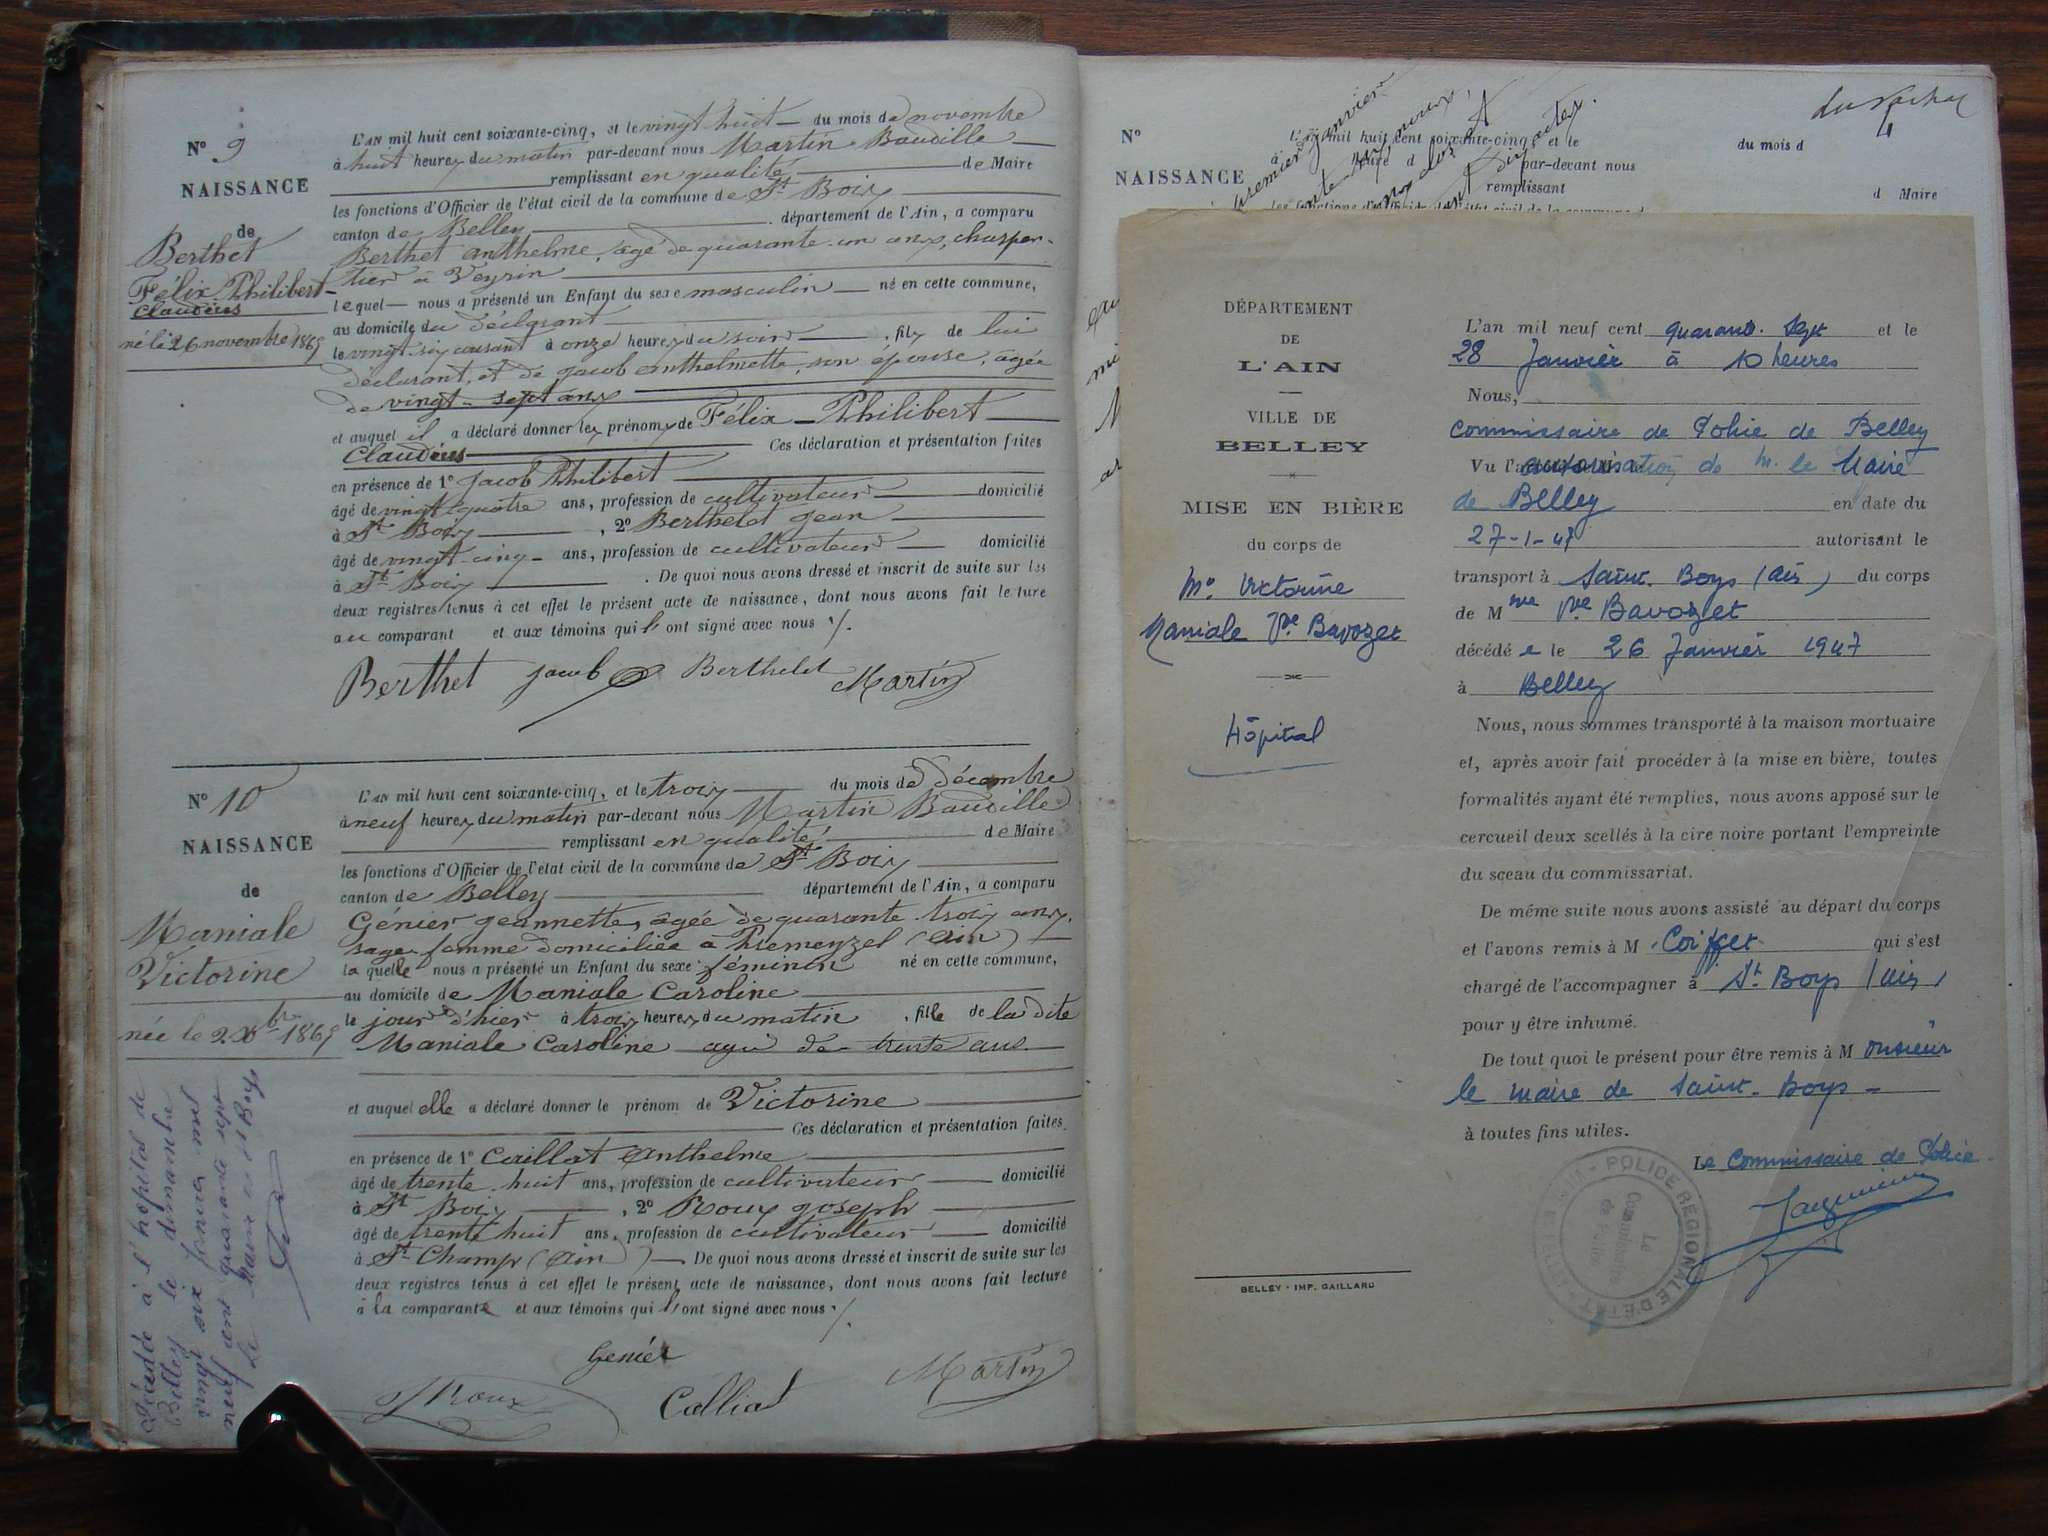 N° 9
NAISSANCE
de
Berthet
Félix Philibert
Claudius
né le 26 novembre 1865
L'AN mil huit cent soixante-cinq, et le vingt huit du mois de novembre
à huit heures du matin par-devant nous Martin Baudille
remplissant en qualité de Maire
les fonctions d'Officier de l'état civil de la commune de St Boix
canton de Belley département de l'Ain, a comparu
Berthet anthelme, âgé de quarante-un ans, charpen-
tier à Veyrin
lequel nous a présenté un Enfant du sexe masculin né en cette commune,
au domicile du déclarant
le vingt six courant à onze heures du soir, fils de lui
déclarant, et de jacob anthelmette, son épouse, agée
de vingt-sept ans
et auquel il a déclaré donner les prénoms de Félix-Philibert
Claudius Ces déclaration et présentation faites
en présence de 1° jacob Philibert
âgé de vingt quatre ans, profession de cultivateur domicilié
à St Boix, 2° Berthelot jean
âgé de vingt-cinq ans, profession de cultivateur domicilié
à St Boix. De quoi nous avons dressé et inscrit de suite sur les
deux registres tenus à cet effet le présent acte de naissance, dont nous avons fait lecture
au comparant et aux témoins qui l'ont signé avec nous ./.
Berthet jacob Berthelot Martin
N° 10
NAISSANCE
de
Maniale
Victorine
née le 2 Xbre 1865
Décédée à l'hôpital de
Belley le dimanche
vingt six janvier mil
neuf cent quarante sept
Le Maire de St Boys
L'AN mil huit cent soixante-cinq, et le trois du mois de décembre
à neuf heures du matin par-devant nous Martin Baudille
remplissant en qualité de Maire
les fonctions d'Officier de l'état civil de la commune de St Boix
canton de Belley département de l'Ain, a comparu
Génier jeannette, agée de quarante trois ans,
sage-femme domiciliée à Premeyzel (Ain)
la quelle nous a présenté un Enfant du sexe féminin né en cette commune,
au domicile de Maniale Caroline
le jour d'hier à trois heures du matin, fille de la dite
Maniale Caroline agée de trente ans
et auquel elle a déclaré donner le prénom de Victorine
Ces déclaration et présentation faites
en présence de 1° Caillat Anthelme
âgé de trente-huit ans, profession de cultivateur domicilié
à St Boix, 2° Roux joseph
âgé de trente huit ans, profession de cultivateur domicilié
à St Champ (Ain) De quoi nous avons dressé et inscrit de suite sur les
deux registres tenus à cet effet le présent acte de naissance, dont nous avons fait lecture
à la comparante et aux témoins qui l'ont signé avec nous ./.
Genier
J Roux Calliat Martin
N°
NAISSANCE
L'AN mil huit cent soixante-cinq et le du mois d
par-devant nous
remplissant d Maire
DÉPARTEMENT
DE
L'AIN
VILLE DE
BELLEY
MISE EN BIÈRE
du corps de
Me Victorine
Maniale Vve Bavozet
Hôpital
BELLEY - IMP. GAILLARD
L'an mil neuf cent quarante. Sept et le
28 Janvier à 10 heures
Nous,
Commissaire de Police de Belley
Vu l'autorisation de M. le Maire
de Belley en date du
27-1-47 autorisant le
transport à Saint-Boys (Ain) du corps
de Mme Vve Bavozet
décédée le 26 Janvier 1947
à Belley
Nous, nous sommes transporté à la maison mortuaire
et, après avoir fait procéder à la mise en bière, toutes
formalités ayant été remplies, nous avons apposé sur le
cercueil deux scellés à la cire noire portant l'empreinte
du sceau du commissariat.
De même suite nous avons assisté au départ du corps
et l'avons remis à M Coiffet qui s'est
chargé de l'accompagner à St. Boys (Ain)
pour y être inhumé.
De tout quoi le présent pour être remis à Monsieur
le maire de Saint-Boys -
à toutes fins utiles.
Le Commissaire de Police
POLICE REGIONALE D'ETAT
Le
Commissaire
de Police